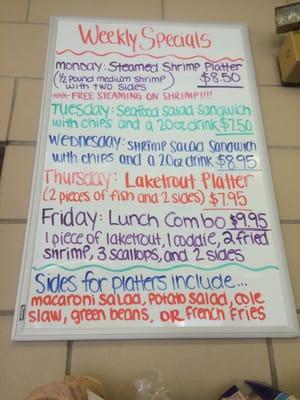 Weekly Specials
Monday: Steamed Shrimp Platter
(1/2 pound medium shrimp) $8.50
with two sides
*** FREE STEAMING ON SHRIMP!!!!
Tuesday: Seafood Salad Sandwich
with chips and a 20oz drink $7.50
Wednesday: Shrimp Salad Sandwich
with chips and a 20oz drink $8.95
Thursday: Laketrout Platter
(2 pieces of fish and 2 sides) $7.95
Friday: Lunch Combo $9.95
1 piece of laketrout, 1 coddie, 2 fried
shrimp, 3 scallops, and 2 sides
Sides for platters include...
macaroni salad, potato salad, cole
slaw, green beans, OR French Fries